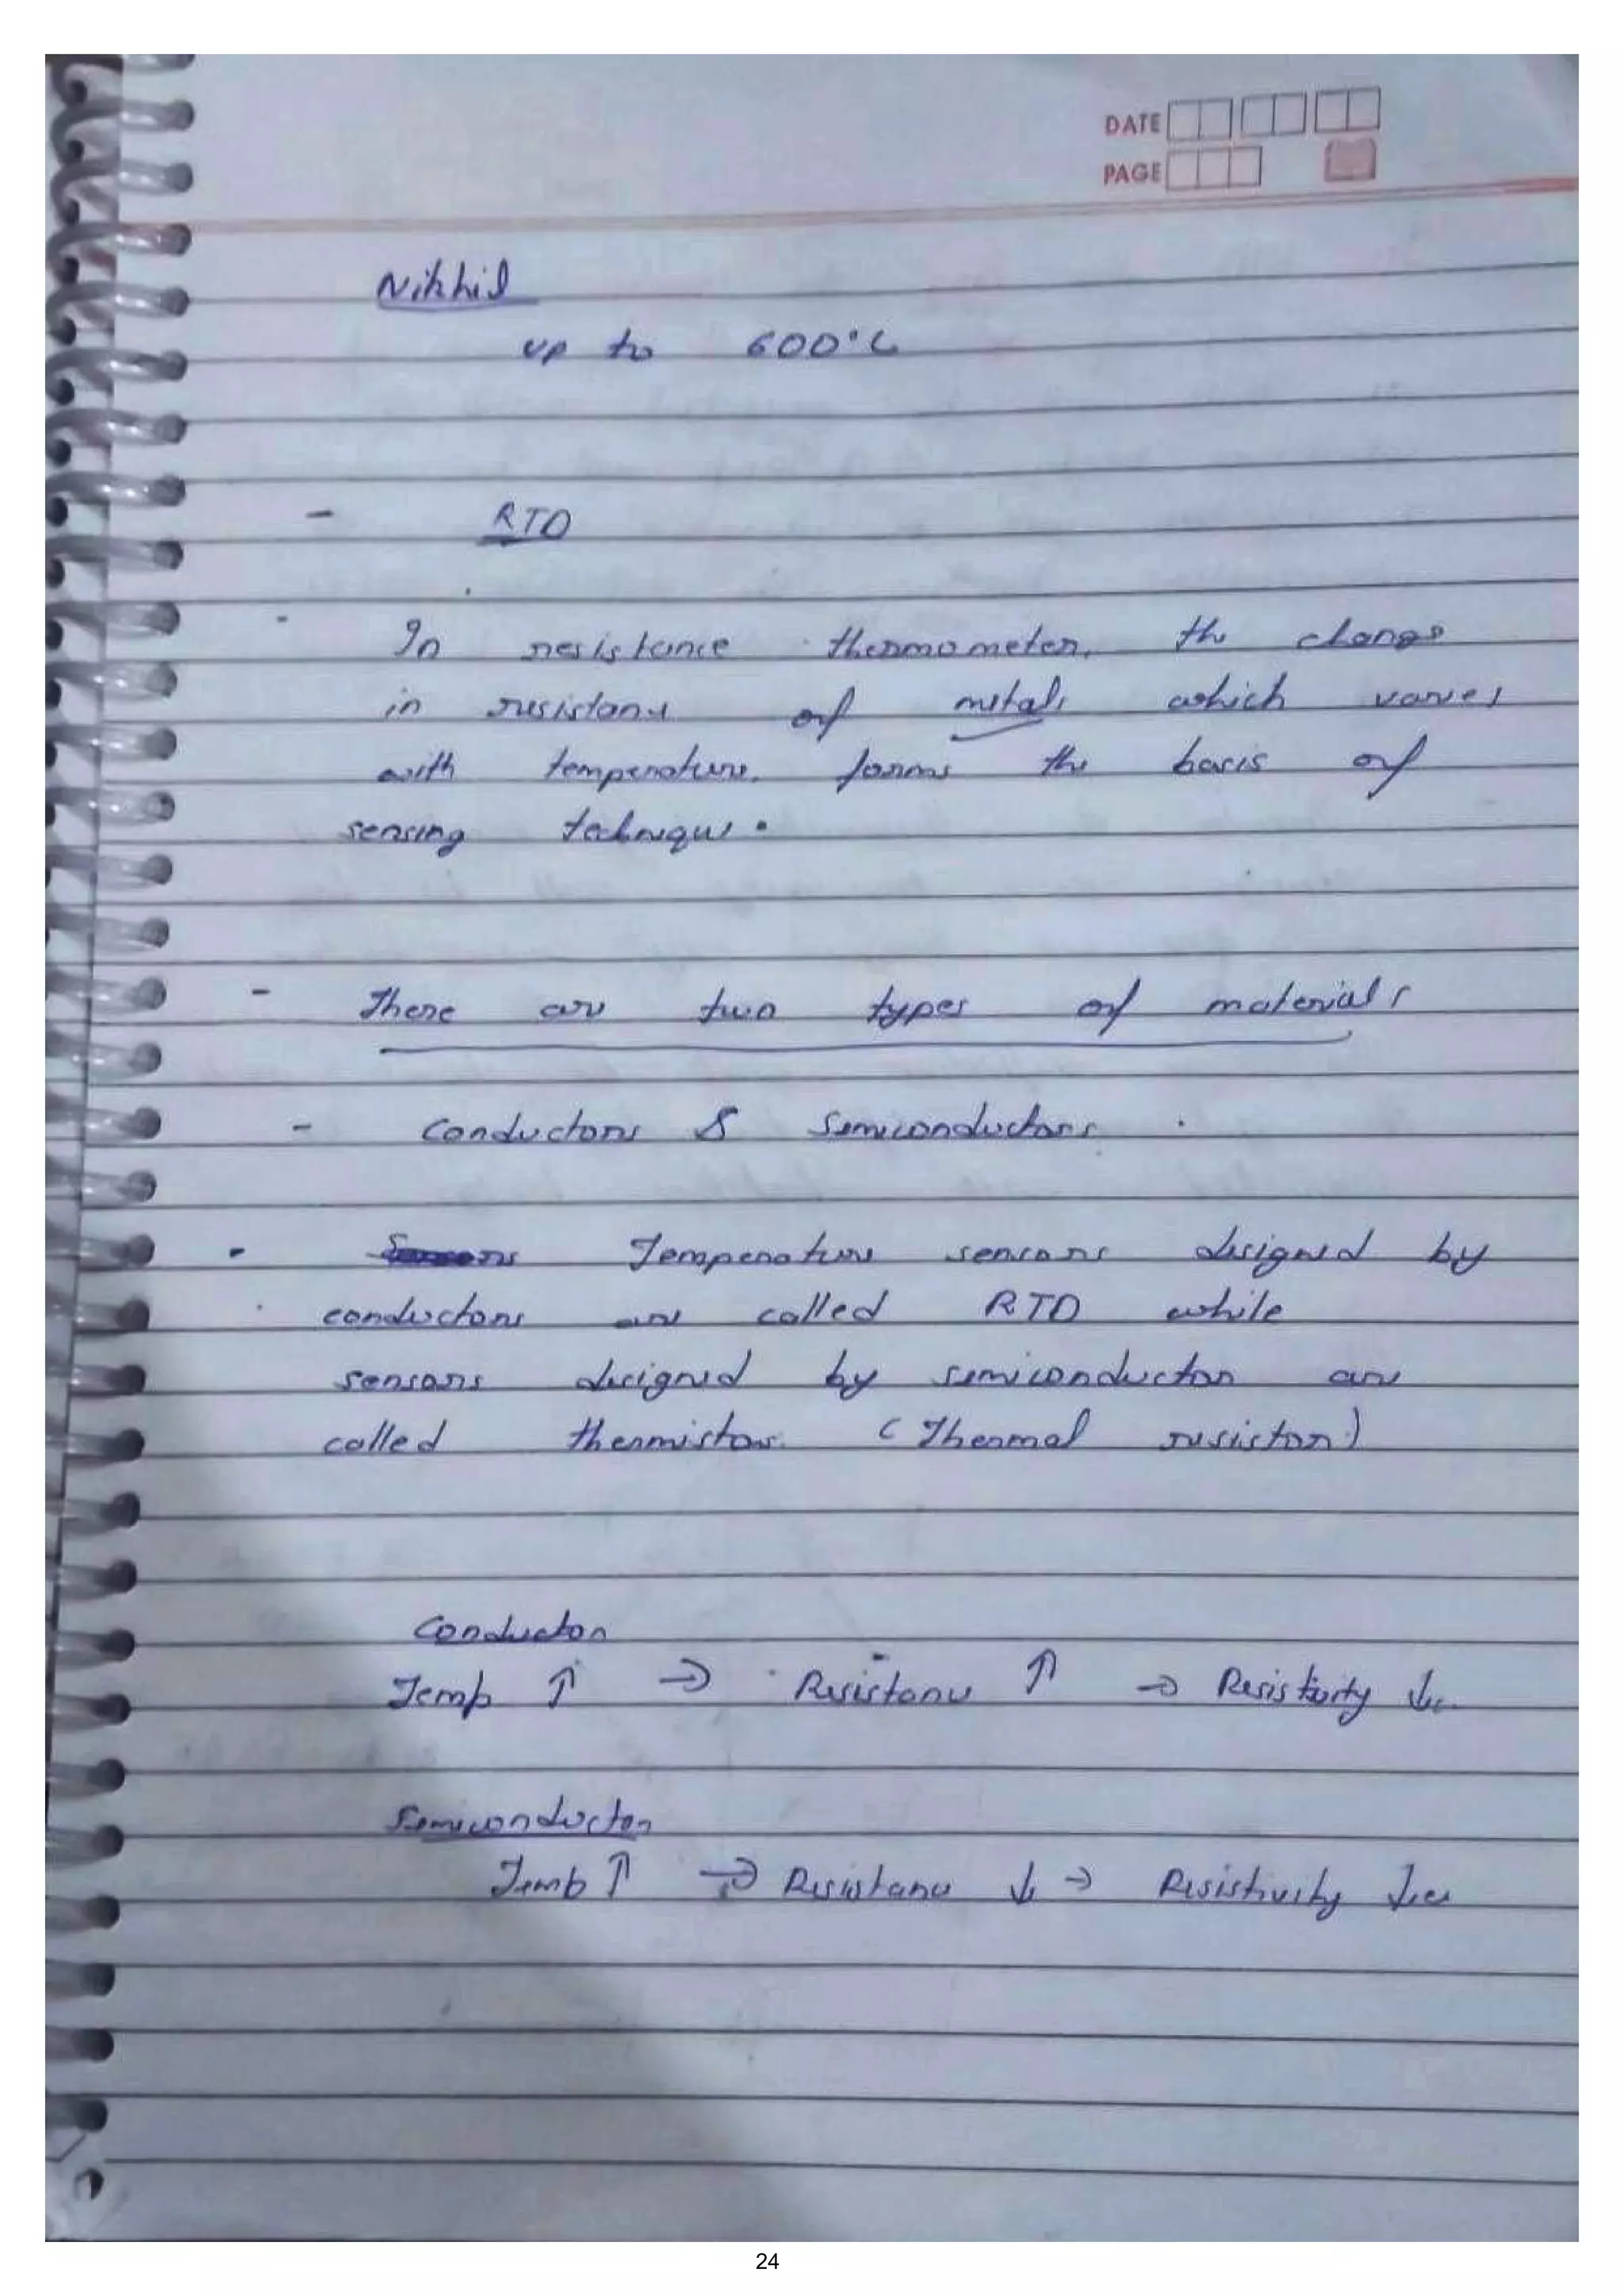 DATE
PAGE
Nikhil
up to 600°C
- RTD
- In resistance thermometer, the change
in resistance of metals which varies
with temperature, forms the basis of
sensing technique.
- There are two types of materials
- Conductors & Semiconductors.
- Temperature sensors designed by
conductors are called RTD while
sensors designed by semiconductor are
called thermistors. (Thermal resistor)
Conductor
Temp ↑ → Resistance ↑ → Resistivity ↓
Semiconductor
Temp ↑ → Resistance ↓ → Resistivity ↓
24